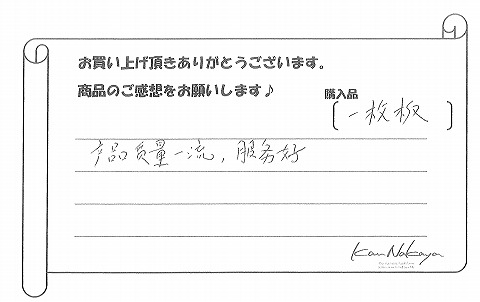 お買い上げ頂きありがとうございます。
商品のご感想をお願いします♪
購入品
[一枚板]
产品质量一流，服务好
Kan Nakaya